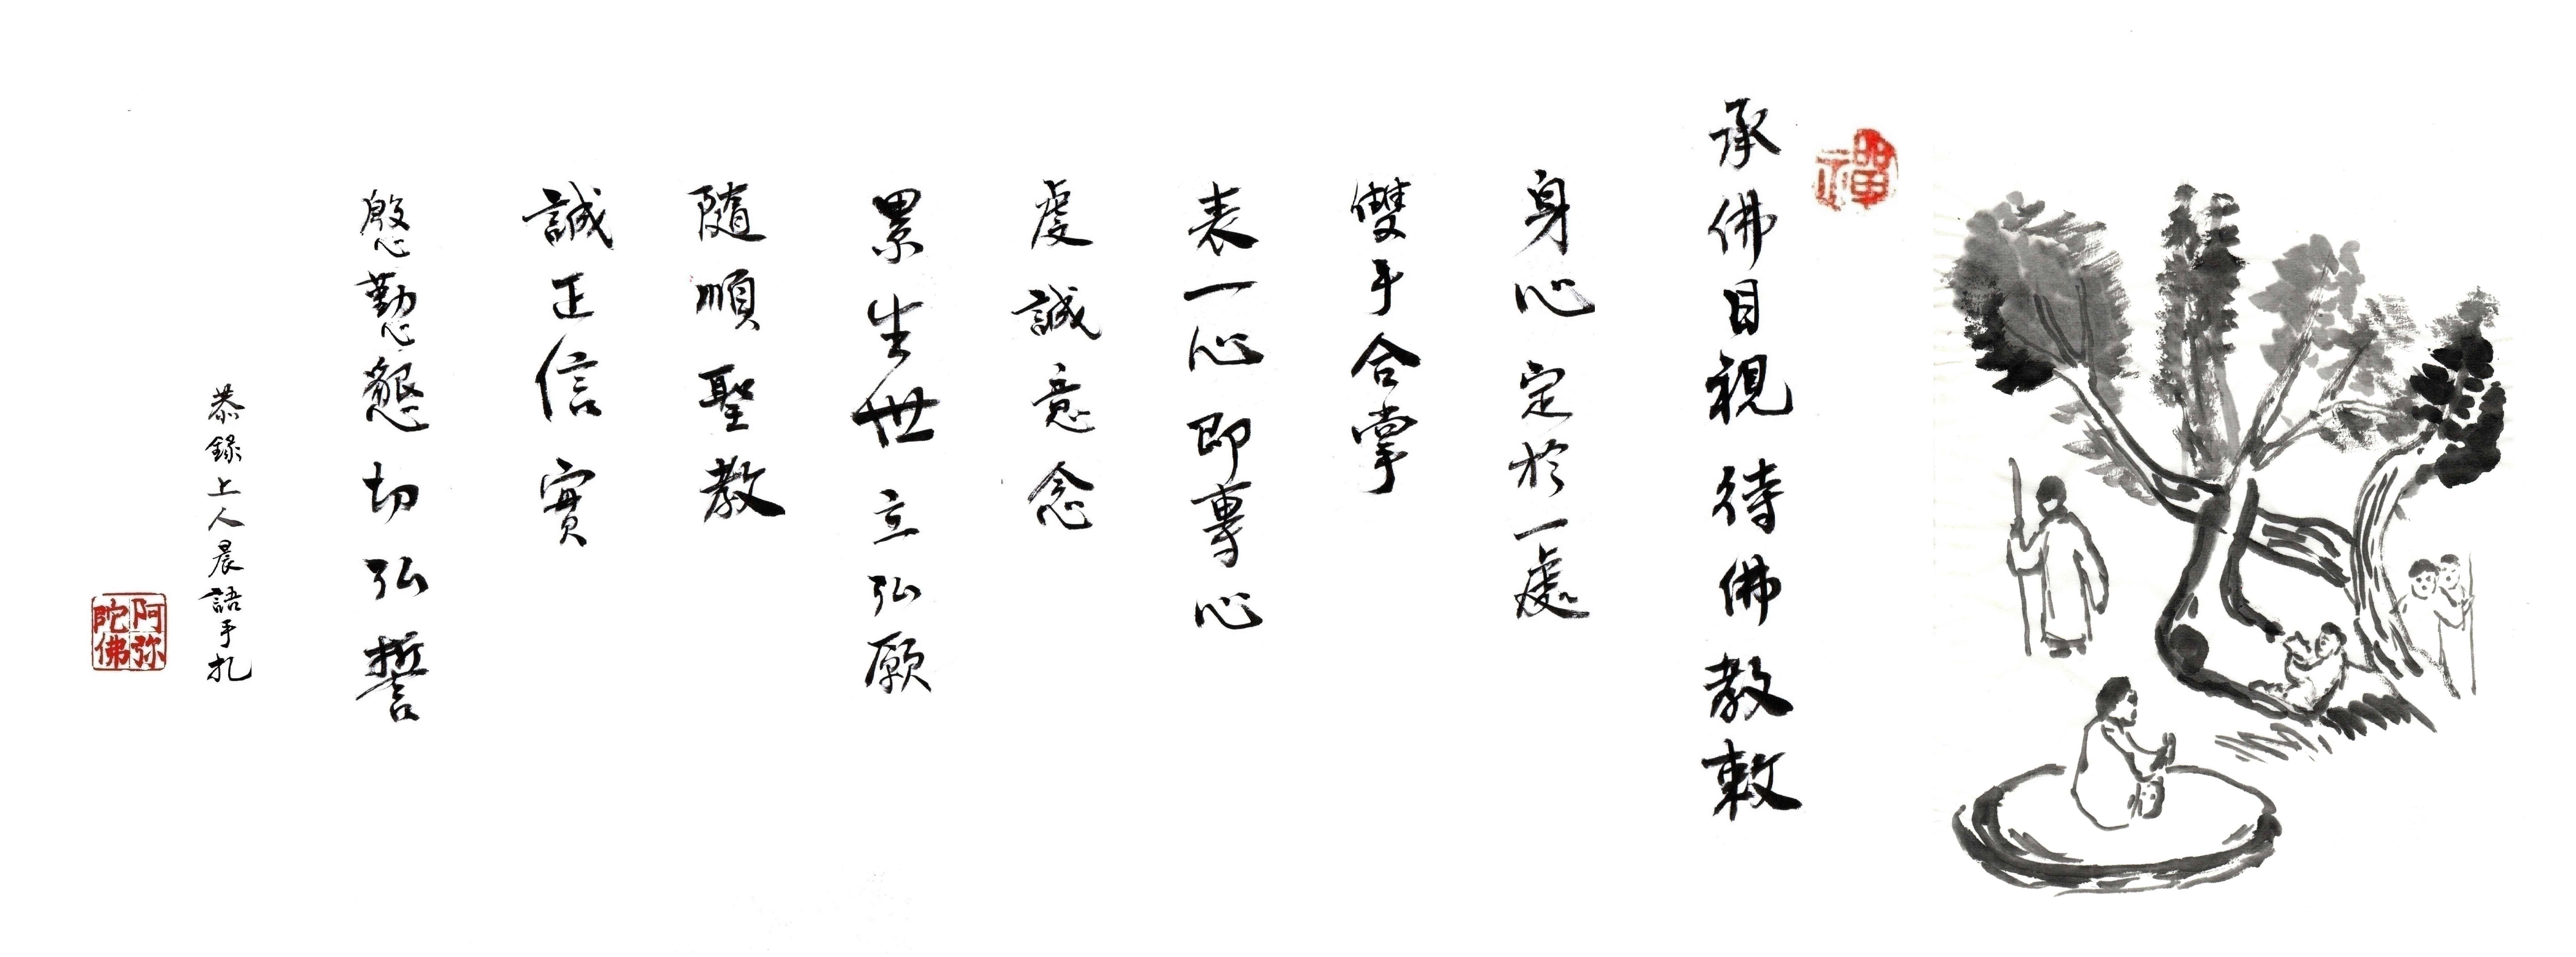 禪
承佛目視待佛教敕
身心定於一處
雙手合掌
表一心即專心
虔誠意念
累生世立弘願
隨順聖教
誠正信實
慇懃懇切弘誓
恭錄上人晨語手扎
阿弥陀佛